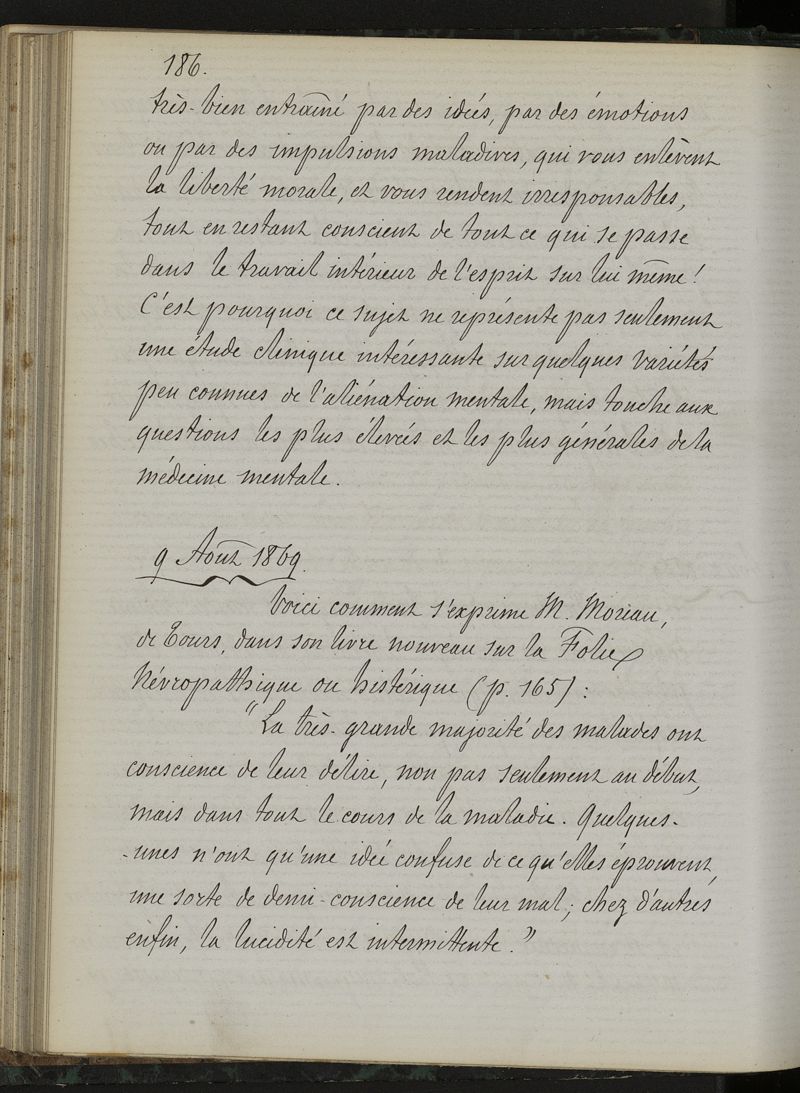 186.
très-bien entraîné par des idées, par des émotions
ou par des impulsions maladives, qui vous enlèvent
la liberté morale, et vous rendent irresponsables,
tout en restant conscient de tout ce qui se passe
dans le travail intérieur de l'esprit sur lui même!
C'est pourquoi ce sujet ne représente pas seulement
une étude clinique intéressante sur quelques variétés
peu connues de l'aliénation mentale, mais touche aux
questions les plus élevées et les plus générales de la
médecine mentale.
9 Août 1869.
Voici comment s'exprime M. Moreau,
de Tours, dans son livre nouveau sur la Folie
Névropathique ou histérique (p. 165) :
"La très-grande majorité des malades ont
conscience de leur délire, non pas seulement au début,
mais dans tout le cours de la maladie. Quelques-
-unes n'ont qu'une idée confuse de ce qu'elles éprouvent,
une sorte de demi-conscience de leur mal; chez d'autres
enfin, la lucidité est intermittente."